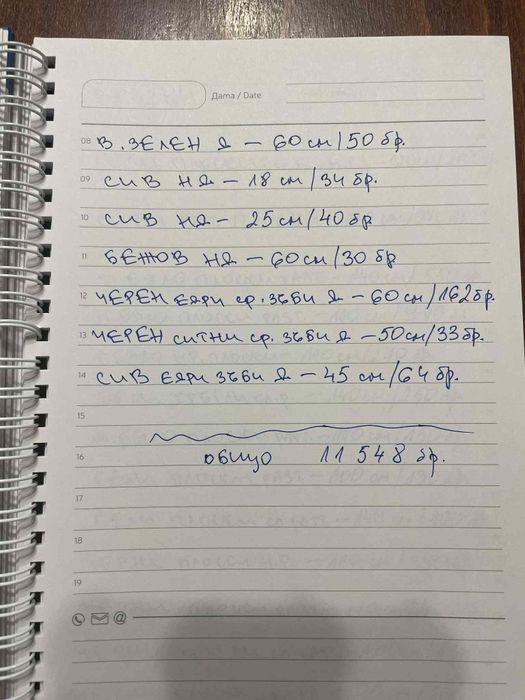 Дата / Date
08 В. ЗЕЛЕН Д – 60 см/50 бр.
09 СИВ НД – 18 см/34 бр.
10 СИВ НД – 25 см/40 бр
11 БЕЖОВ НД – 60 см/30 бр
12 ЧЕРЕН ЕДРИ ср. ЗЪБИ Д – 60 см/162 бр.
13 ЧЕРЕН СИТНИ ср. ЗЪБИ Д – 50 см/33 бр.
14 СИВ ЕДРИ ЗЪБИ Д – 45 см/64 бр.
15
16 ОБЩО 11 548 бр.
17
18
19
@